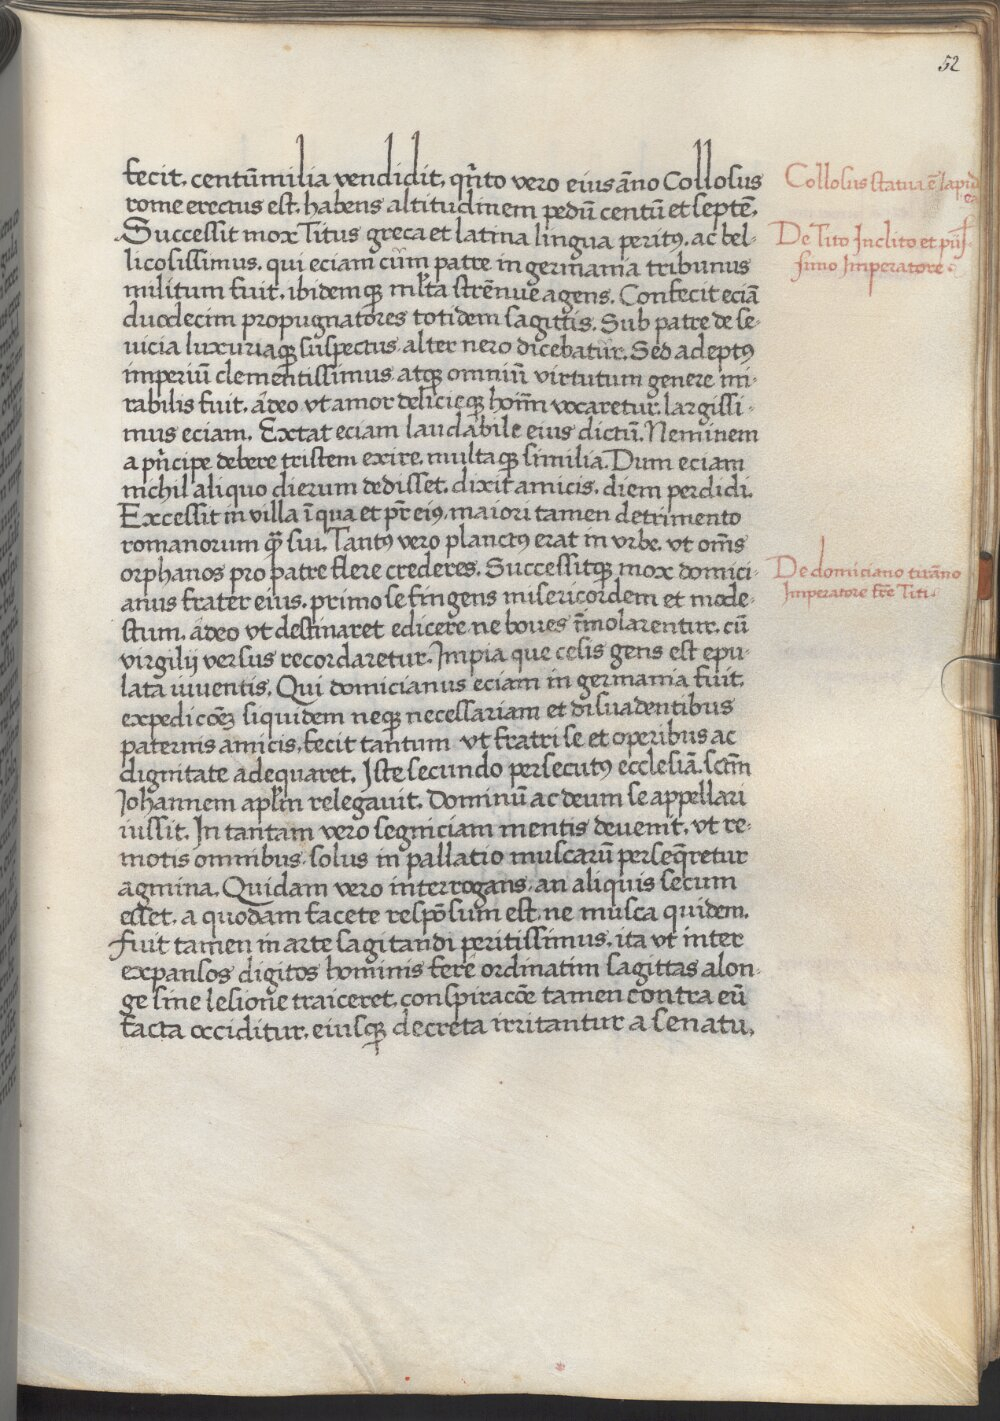 52
fecit. centū milia vendidit. qn̄to vero eius āno Collosus
rome erectus est. habens altitudinem pedū centū et septē.
Successit mox Titus greca et latina lingua peritꝰ. ac bel-
licosissimus. qui eciam cūm patre in germania tribunus
militum fuit. ibidemqꝫ ml̄ta strēnue agens. Confecit eciā
duodecim propugnatores totidem sagittis. Sub patre de se-
uicia luxuriaqꝫ suspectus alter nero dicebatur. Sed adeptꝰ
imperiū clementissimus atqꝫ omniū virtutum genere mi-
rabilis fuit. adeo vt amor delicieqꝫ hoīm vocaretur. largissi-
mus eciam. Extat eciam laudabile eius dictū. Neminem
a pn̄cipe debere tristem exire. multaqꝫ similia. Dum eciam
nichil aliquo dierum dedisset. dixit amicis. diem perdidi.
Excessit in villa ī qua et pr̄ eiꝰ. maiori tamen detrimento
romanorum qꝫ̄ sui. Tantꝰ vero planctꝰ erat in vrbe. vt om̄s
orphanos pro patre flere crederes. Successitqꝫ mox domici-
anus frater eius. primo se fingens misericordem et mode-
stum. adeo vt destinaret edicere ne boues īmolarentur. cū
virgilij versus recordaretur. Impia que cesis gens est epu-
lata iuuentis. Qui domicianus eciam in germania fuit.
expedicōeꝫ siquidem neqꝫ necessariam et disuadentibus
paternis amicis. fecit tantum vt fratri se et operibus ac
dignitate adequaret. Iste secundo persecutꝰ ecclesiā. sctm̄
Iohannem apl̄m relegauit. Dominū ac deum se appellari
iussit. In tantam vero segniciam mentis deuenit. vt re-
motis omnibus. solus in pallatio muscarū perseq̄retur
agmina. Quidam vero interrogans. an aliquis secum
esset. a quodam facete respōsum est. ne musca quidem.
Fuit tamen in arte sagitandi peritissimus. ita vt inter
expansos digitos hominis fere ordinatim sagittas a lon-
ge sine lesione traiceret. conspiracōe tamen contra eū
facta occiditur. eiusqꝫ decreta irritantur a senatu.
Collosus statua ē lapid
ea
De Tito Inclito et piis-
simo Imperatore
De domiciano tirāno
Imperatore fr̄e Titi